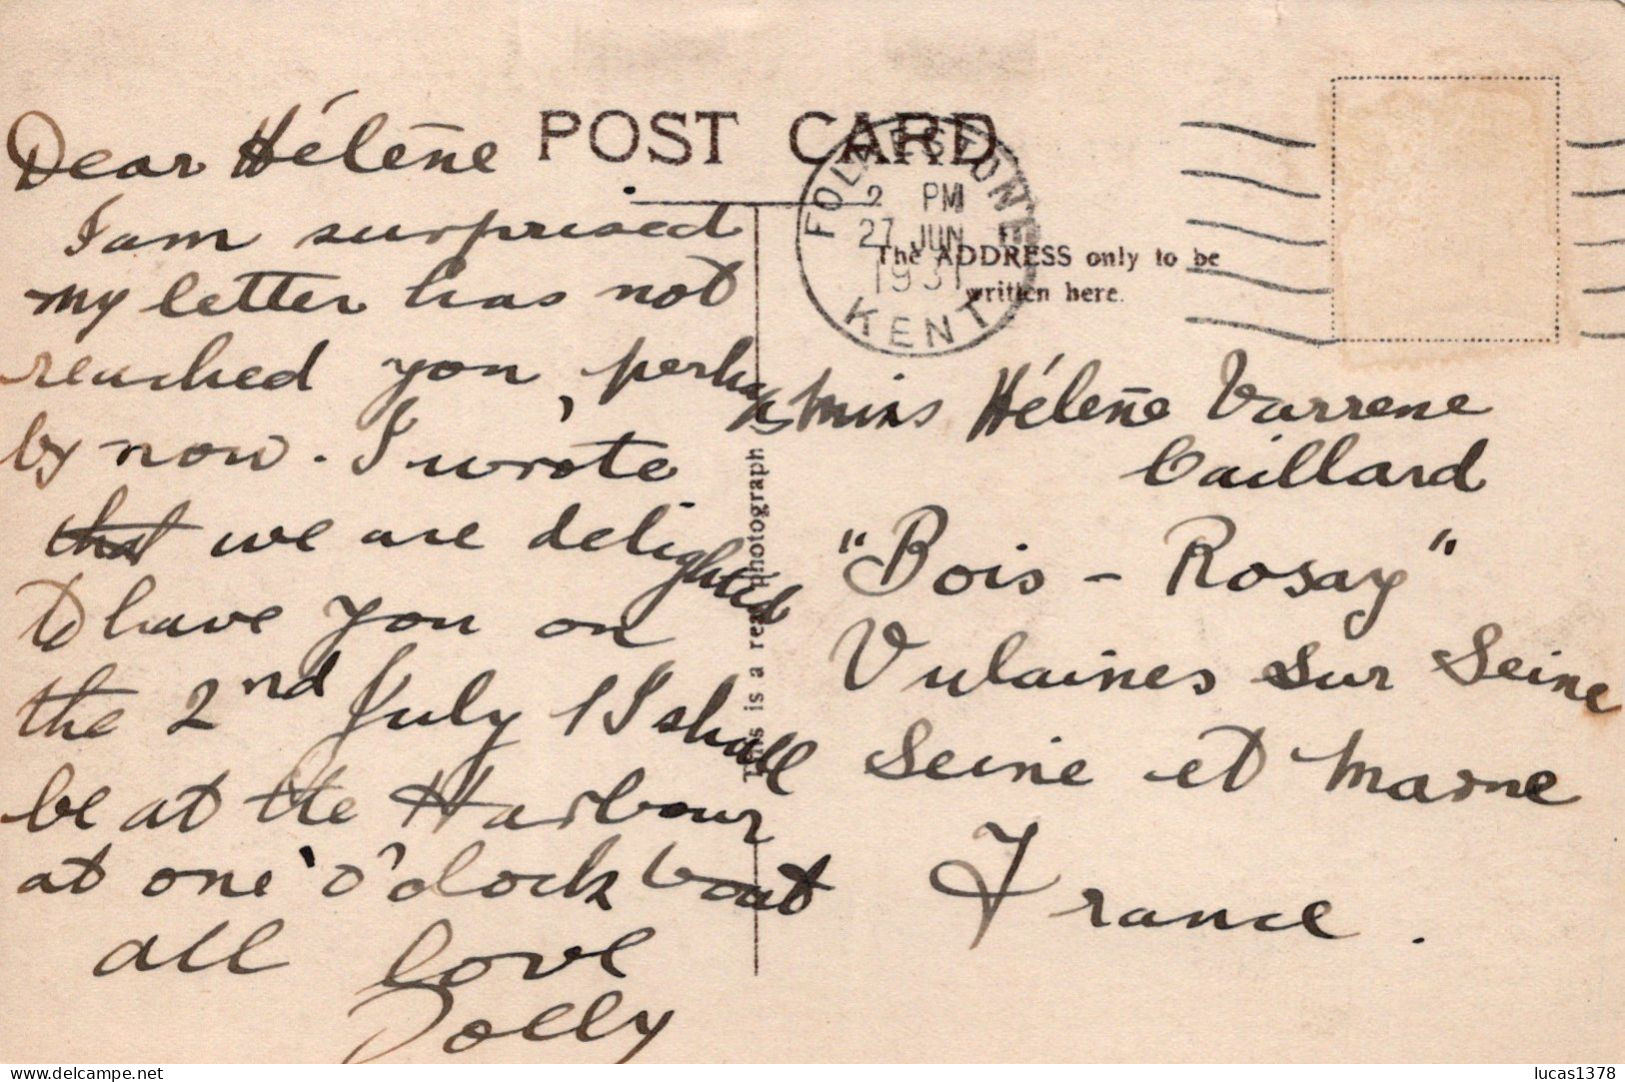 POST CARD
FOLKESTONE
2 PM
27 JUN
1931
KENT
The ADDRESS only to be
written here.
This is a real photograph
Dear Hélène
I am surprised
my letter has not
reached you, perhaps
by now. I wrote
that we are delighted
to have you on
the 2nd July I shall
be at the Harbour
at one o'clock boat
all love
Dolly
Miss Hélène Varrene
Caillard
"Bois - Rosay"
Vulaines sur Seine
Seine et Marne
France.
delcampe.net
lucas1378